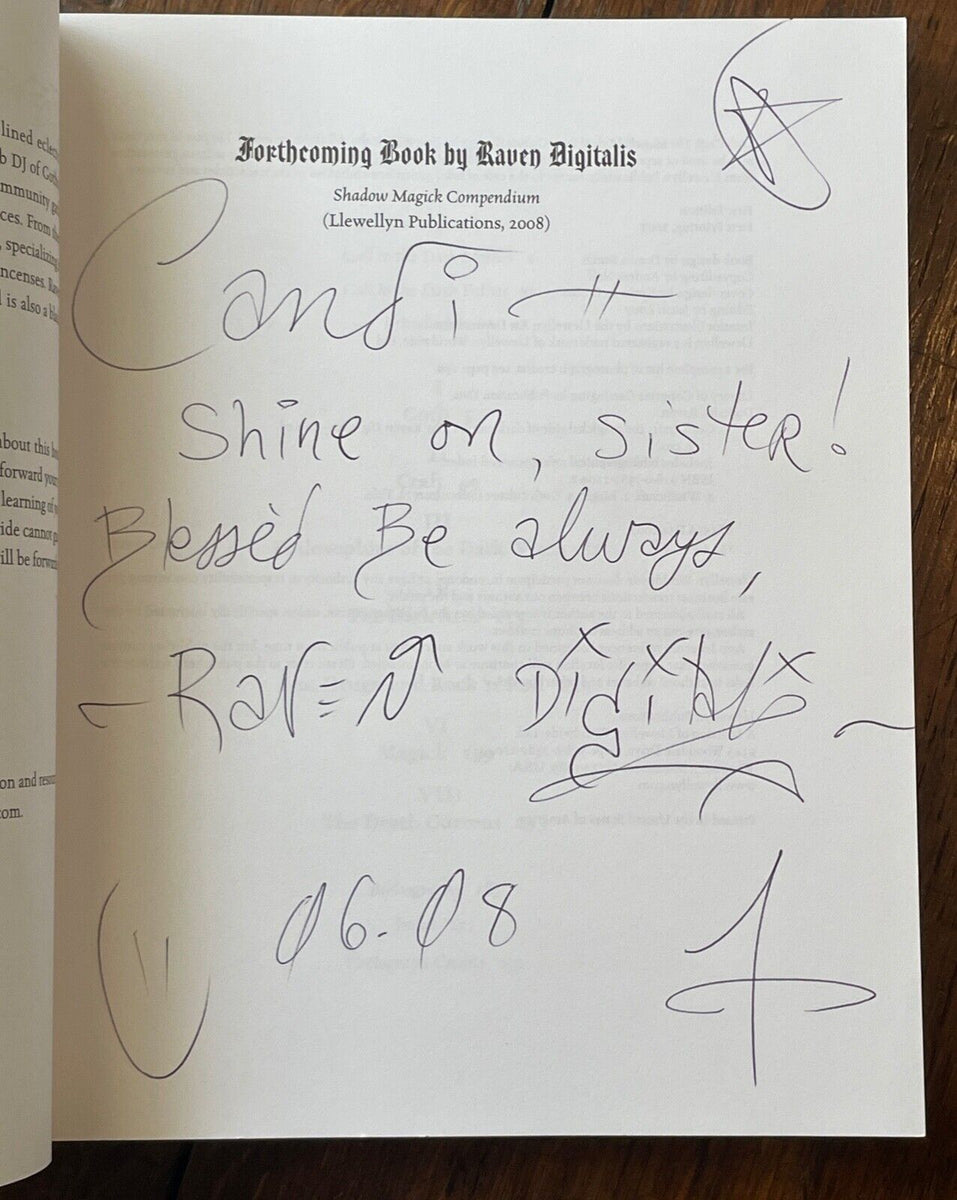 Forthcoming Book by Raven Digitalis
Shadow Magick Compendium
(Llewellyn Publications, 2008)
Candi
Shine on, sister!
Blessèd Be always,
- Raven Digitalis ~
06.08
lined
b DJ of
mmunity
ces. From
, specializing
ncenses.
is also a
about this
forward
learning of
ide cannot
ill be
on and
com.